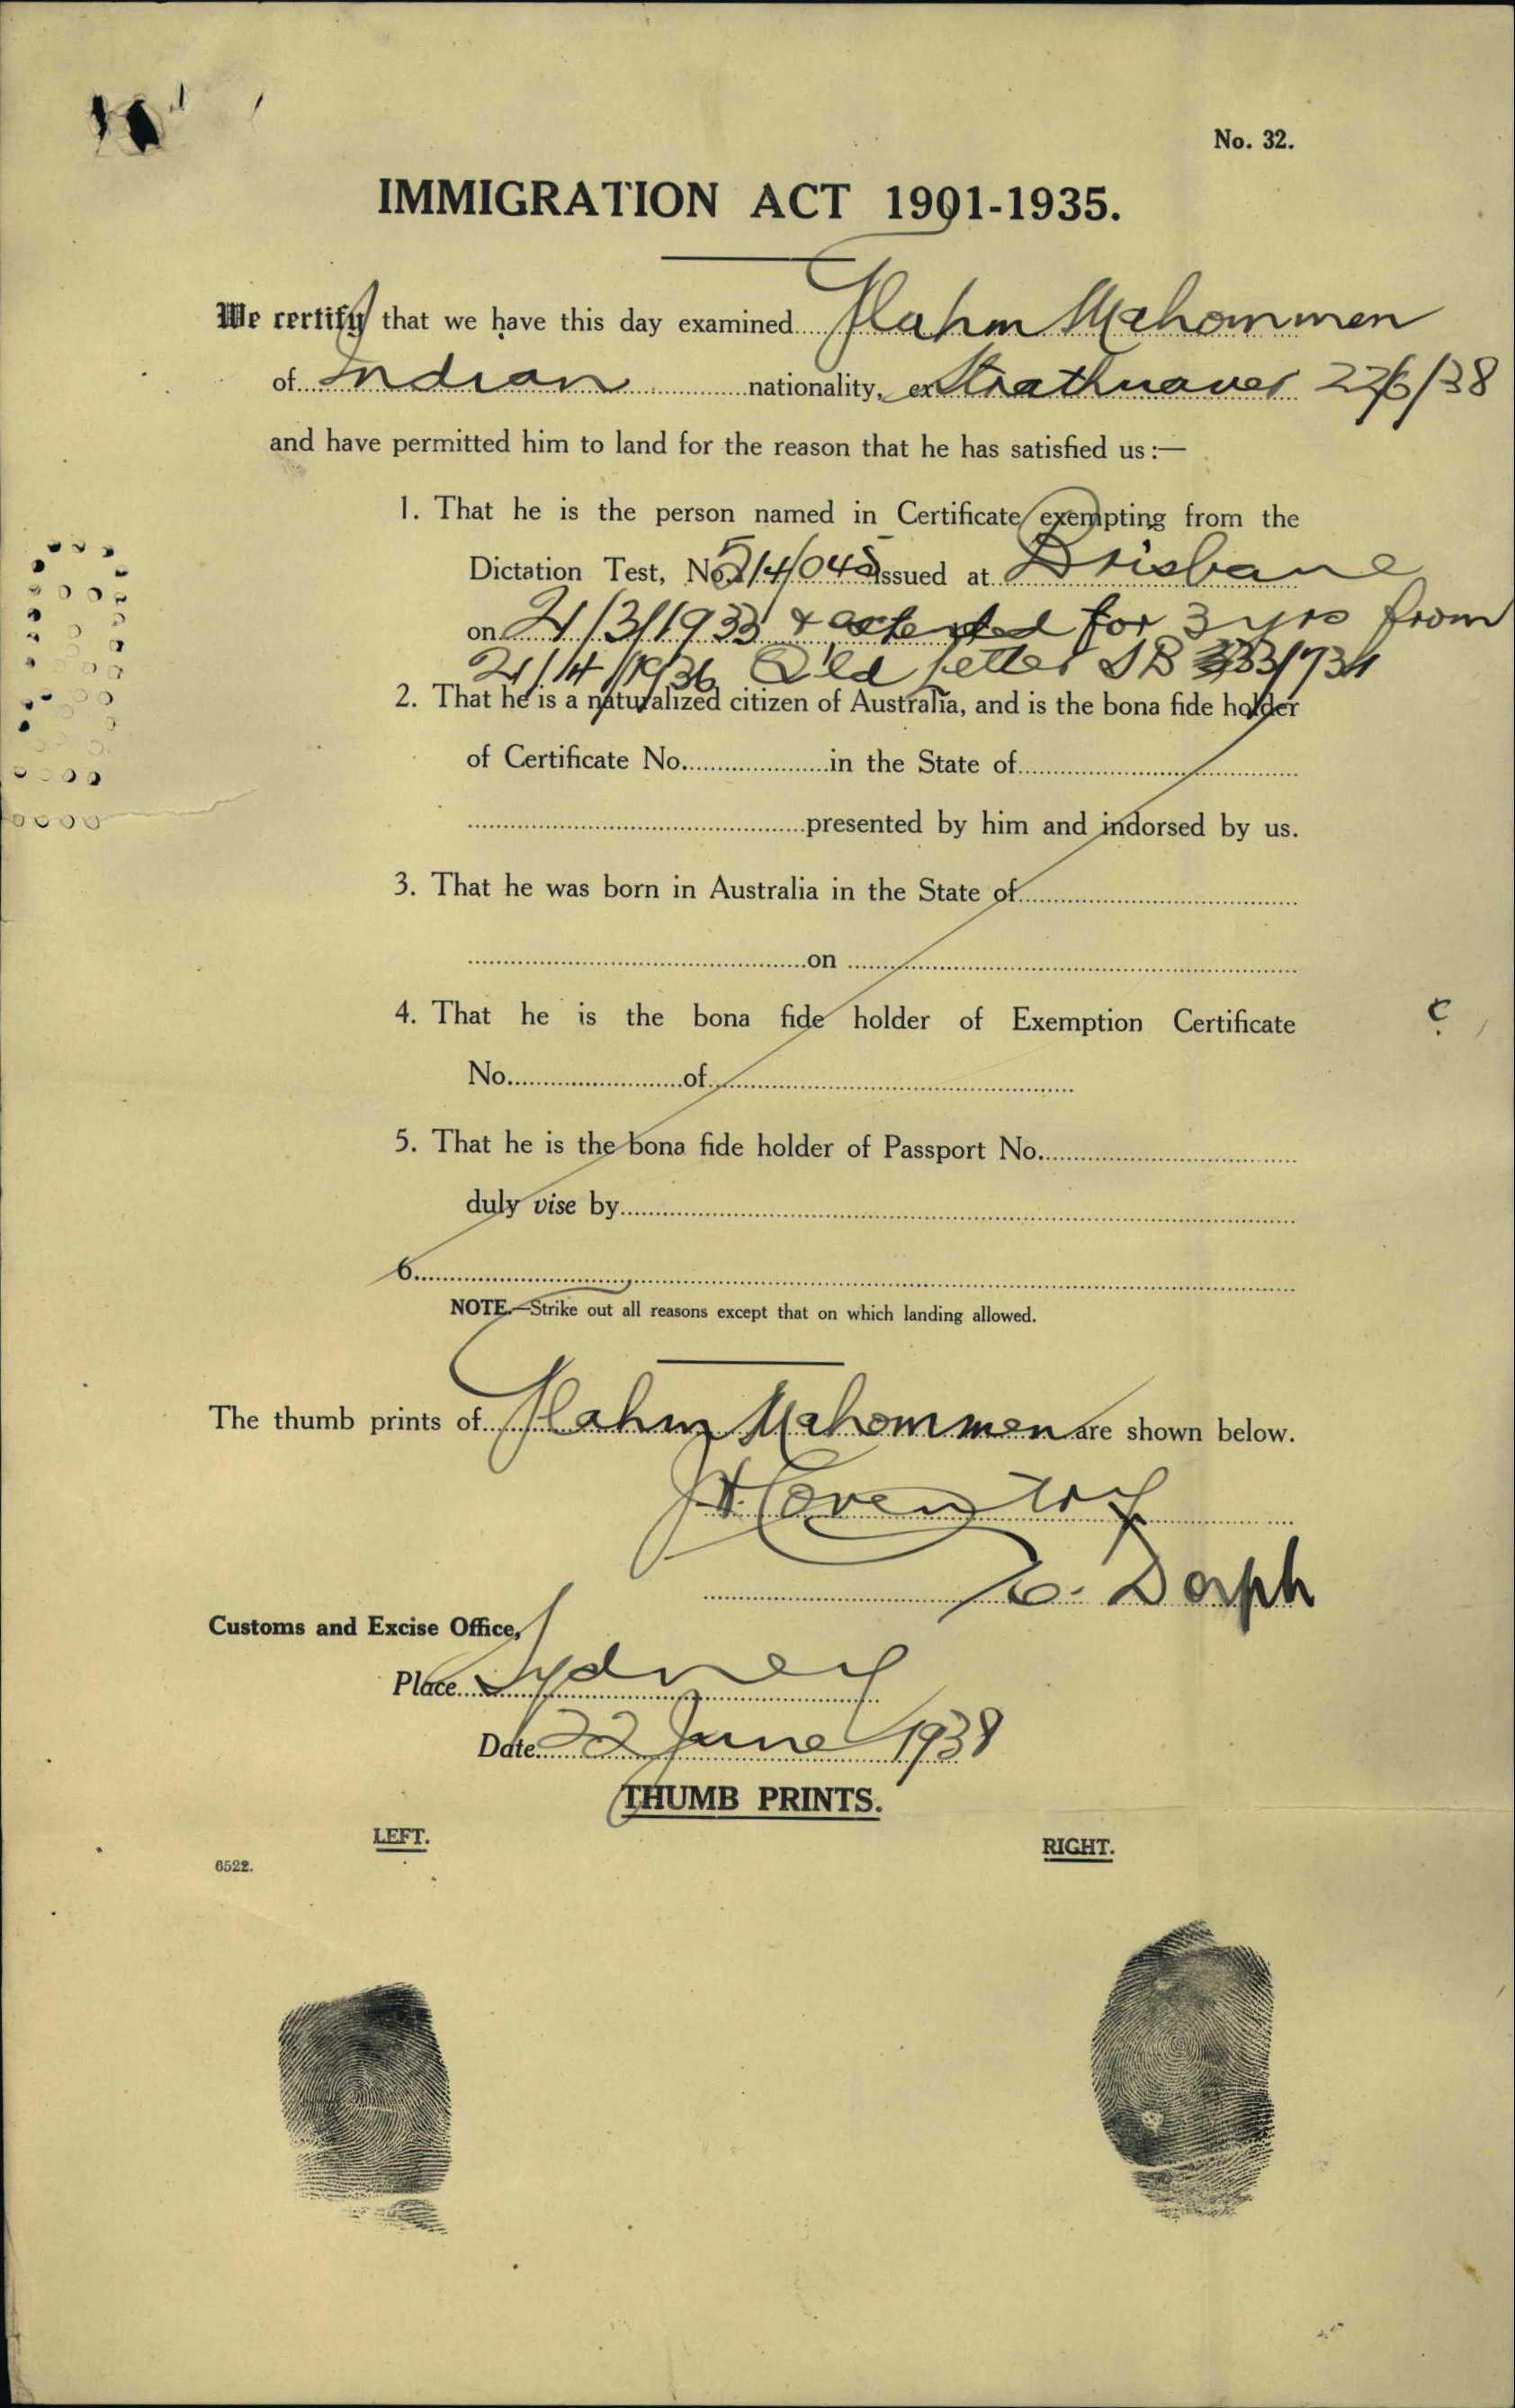 No. 32.
IMMIGRATION ACT 1901-1935.
We certify that we have this day examined Ilahm Mahommen
of Indian nationality, ex Strathnaver 22/6/38
and have permitted him to land for the reason that he has satisfied us :—
1. That he is the person named in Certificate exempting from the
Dictation Test, No. 514/045 issued at Brisbane
on 21/3/1933 & extended for 3 yrs from
21/4/1936 Q'ld letter
2. That he is a naturalized citizen of Australia, and is the bona fide holder
of Certificate No. in the State of
presented by him and indorsed by us.
3. That he was born in Australia in the State of
on
4. That he is the bona fide holder of Exemption Certificate
No. of
5. That he is the bona fide holder of Passport No.
duly vise by
6
NOTE.—Strike out all reasons except that on which landing allowed.
The thumb prints of Ilahm Mahommen are shown below.
J.H. Coventry
Dorph
Customs and Excise Office,
Place Sydney
Date 22 June 1938
THUMB PRINTS.
LEFT.
RIGHT.
6522.